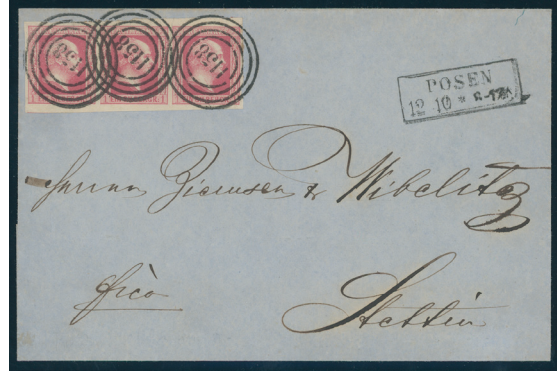 1158 1158 1158
POSEN
12 10 *
Herren & Wibelitz
frco
Stettin